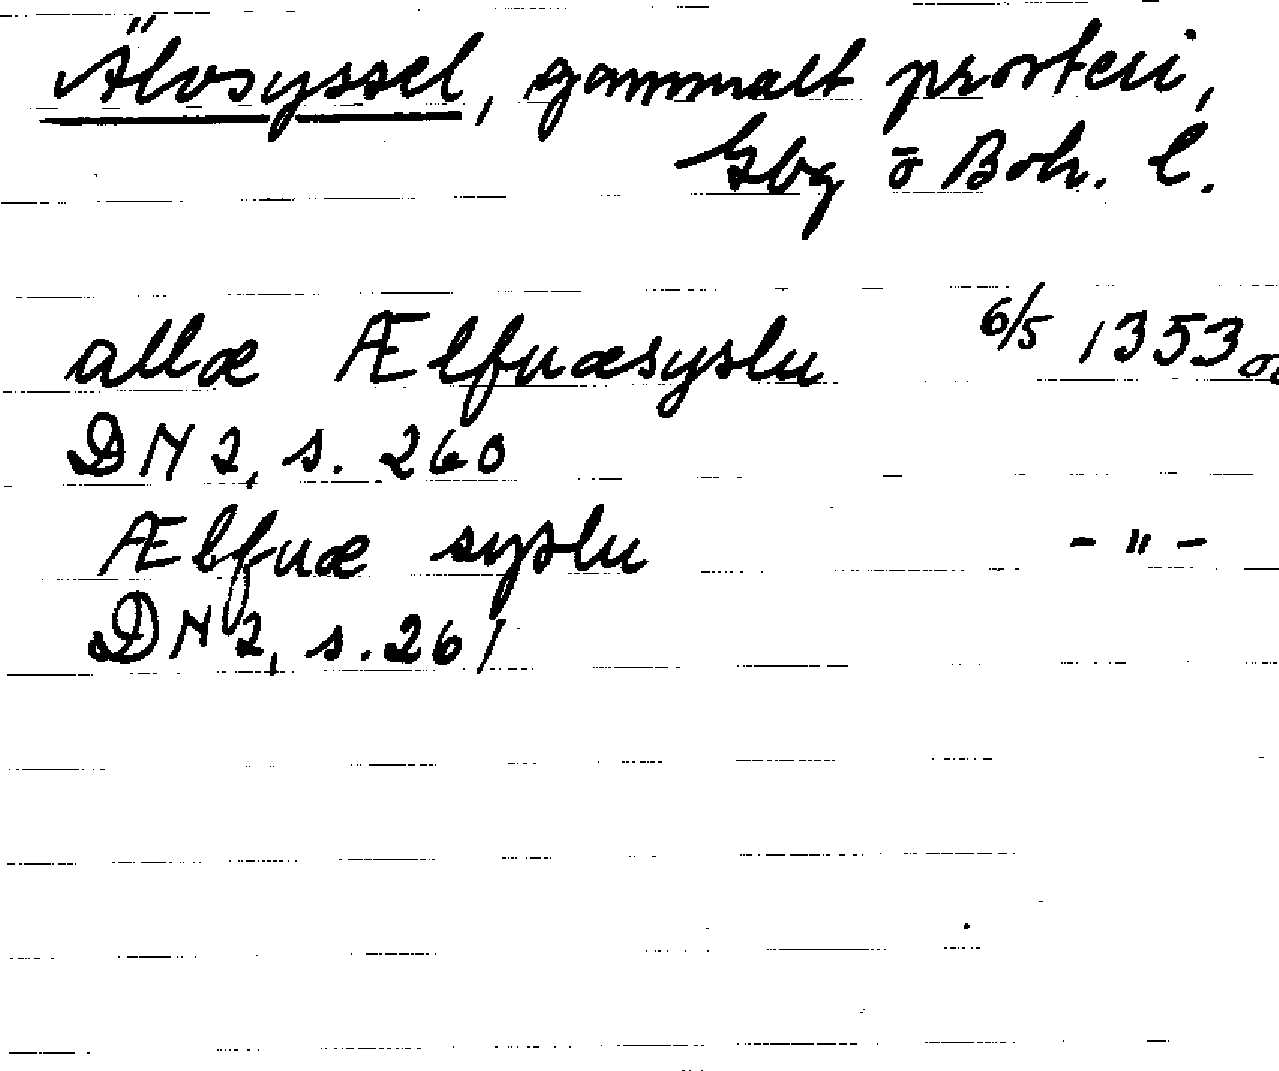 Älvsyssel, gammalt prosteri,
Gbg o Boh. l.
allæ Ælfuæsyslu 6/5 1353
DN 2, s. 260
Ælfuæ syslu - " -
DN 2, s. 261